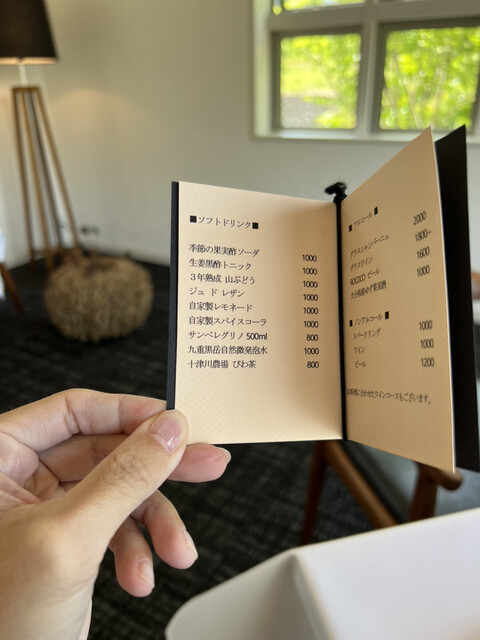 ■ソフトドリンク■
季節の果実酢ソーダ 1000
生姜黒酢トニック 1000
3年熟成 山ぶどう 1000
ジュ ド レザン 1000
自家製レモネード 1000
自家製スパイスコーラ 1000
サンペレグリノ 500ml 800
九重黒岳自然微発泡水 1000
十津川農場 びわ茶 800
■ アルコール ■
グラスシャンパーニュ 2000
グラスワイン 1800~
KOCOCO ビール 1600
大分県産ゆず果実酒 1000
■ノンアルコール■
スパークリング 1000
ワイン 1000
ビール 1200
お料理に合わせたワインコースもございます。